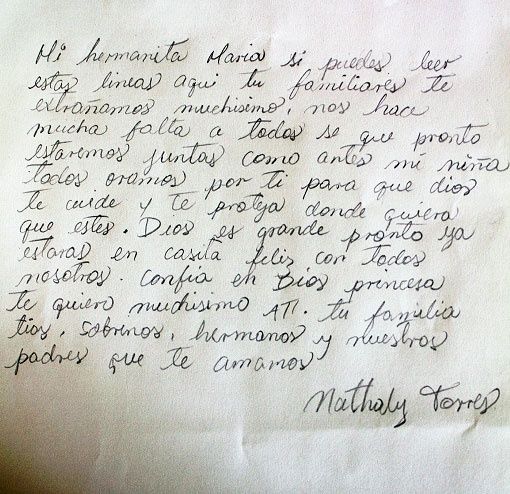 Mi hermanita Maria si puedes leer
estas lineas aqui tu familiares te
extrañamos muchisimo, nos hace
mucha falta a todos se que pronto
estaremos juntas como antes mi niña
todos oramos por ti para que dios
te cuide y te proteja donde quiera
que estes. Dios es grande pronto ya
estaras en casita feliz con todos
nosotros. Confia en Dios princesa
te quiero muchisimo ATT. tu familia
tios, sobrinos, hermanos y nuestros
padres que te amamos
Nathaly Torres